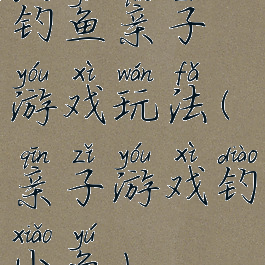 钓鱼亲子
yóu xì wán fǎ
游戏玩法(
qīn zǐ yóu xì diào
亲子游戏钓
xiǎo yú
小鱼)